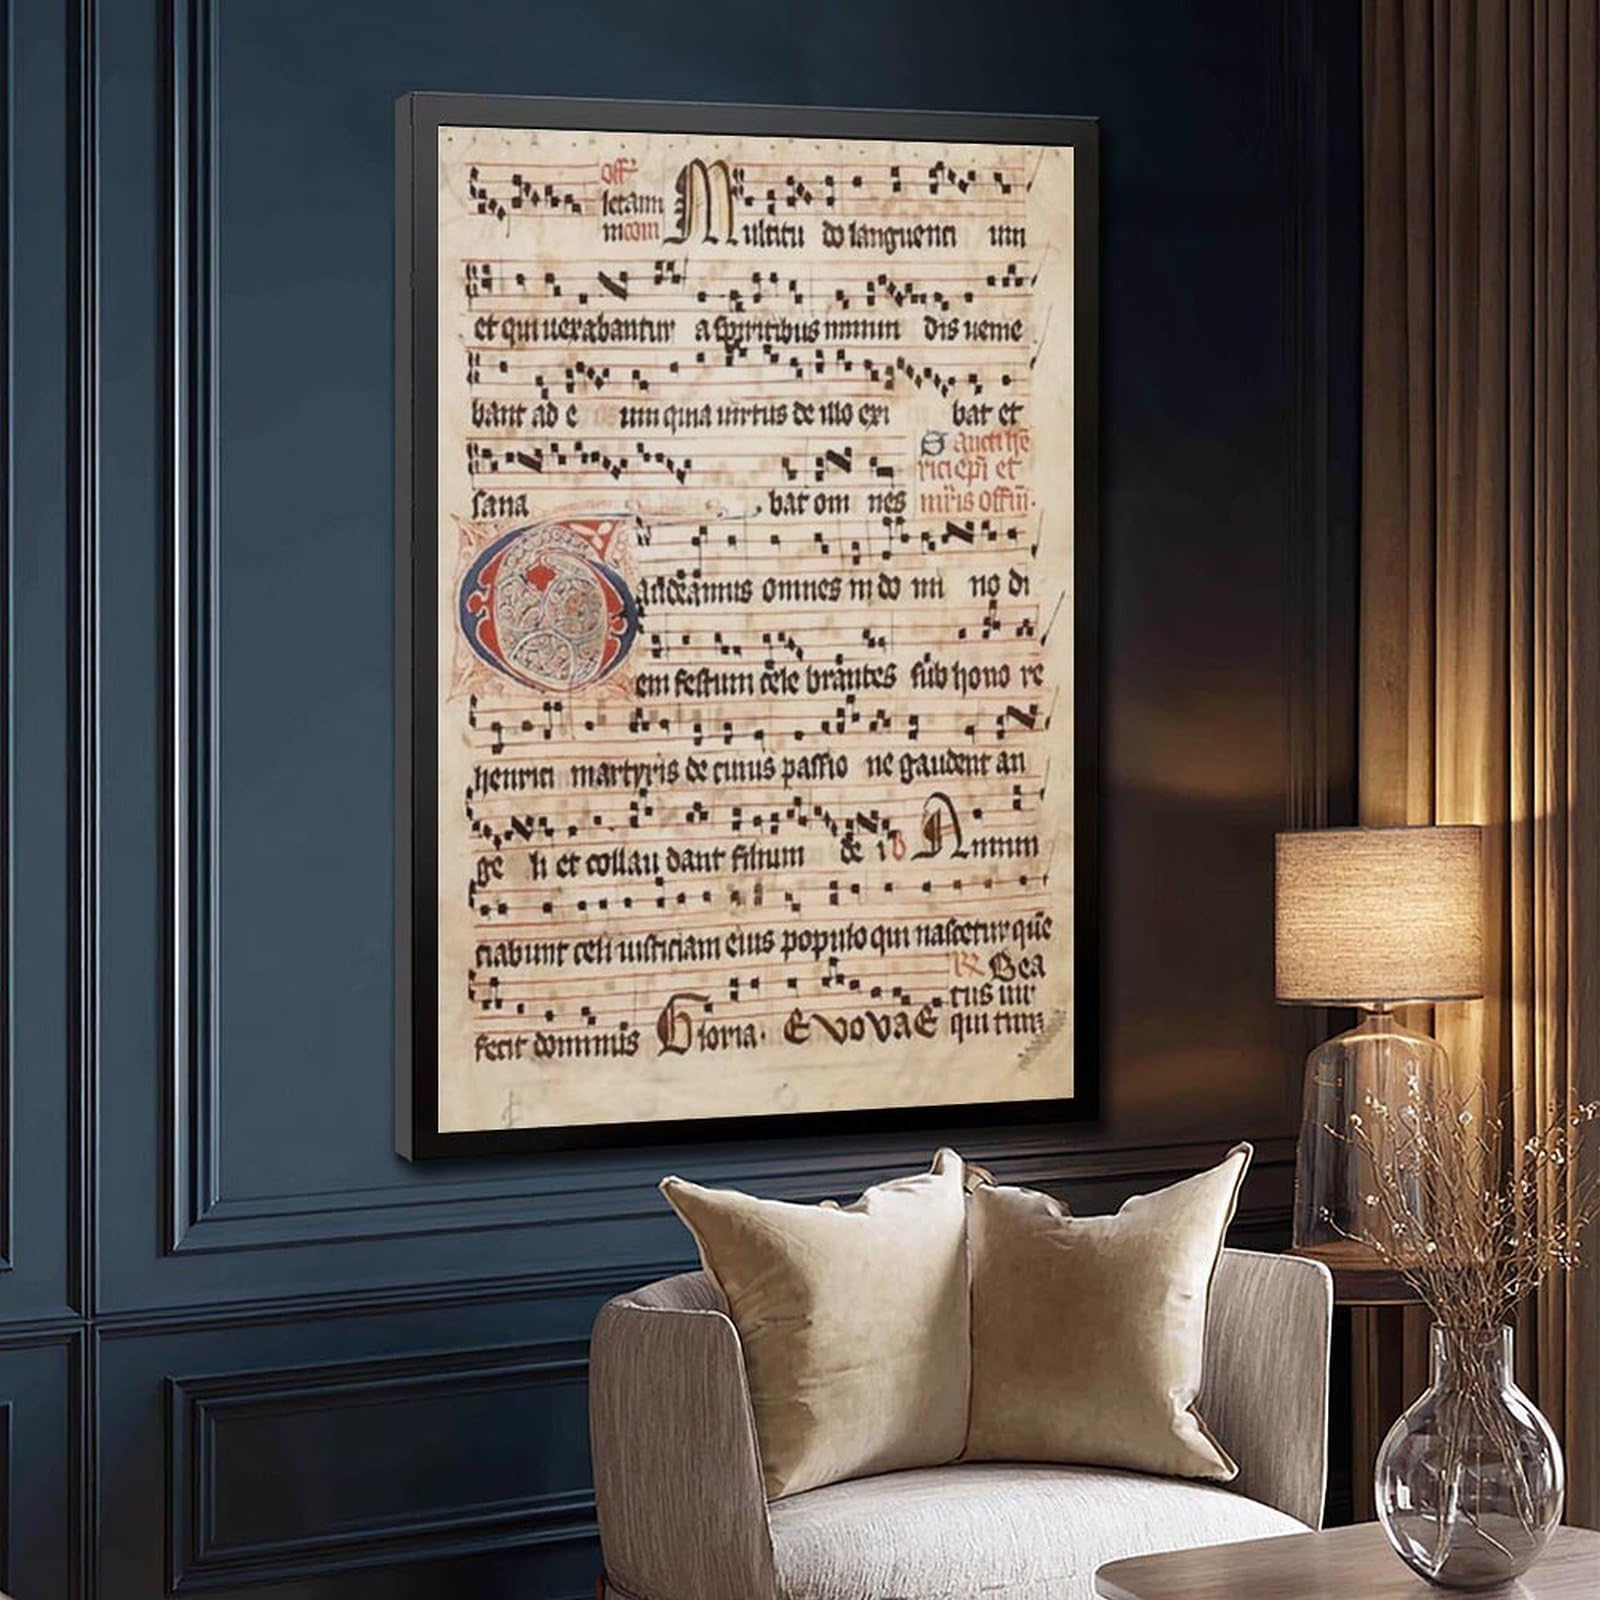 offꝫ
letam
mcom Multitu do languenti um
et qui uexabantur a spiritibus inmun dis uenie
bant ad e um quia uirtus de illo exi bat et
Sancti hē
rici epī et
sana bat om nes mr̄is offm̄.
Gaudeamus omnes in do mi no di
em festum cele brantes sub hono re
henrici martyris de cuius passio ne gaudent an
ge li et collau dant filium de i Annun
ciabunt celi iusticiam eius populo qui nascetur quē
℟ Bea
tus uir
fecit dominus Gloria. EVOVAE qui tim